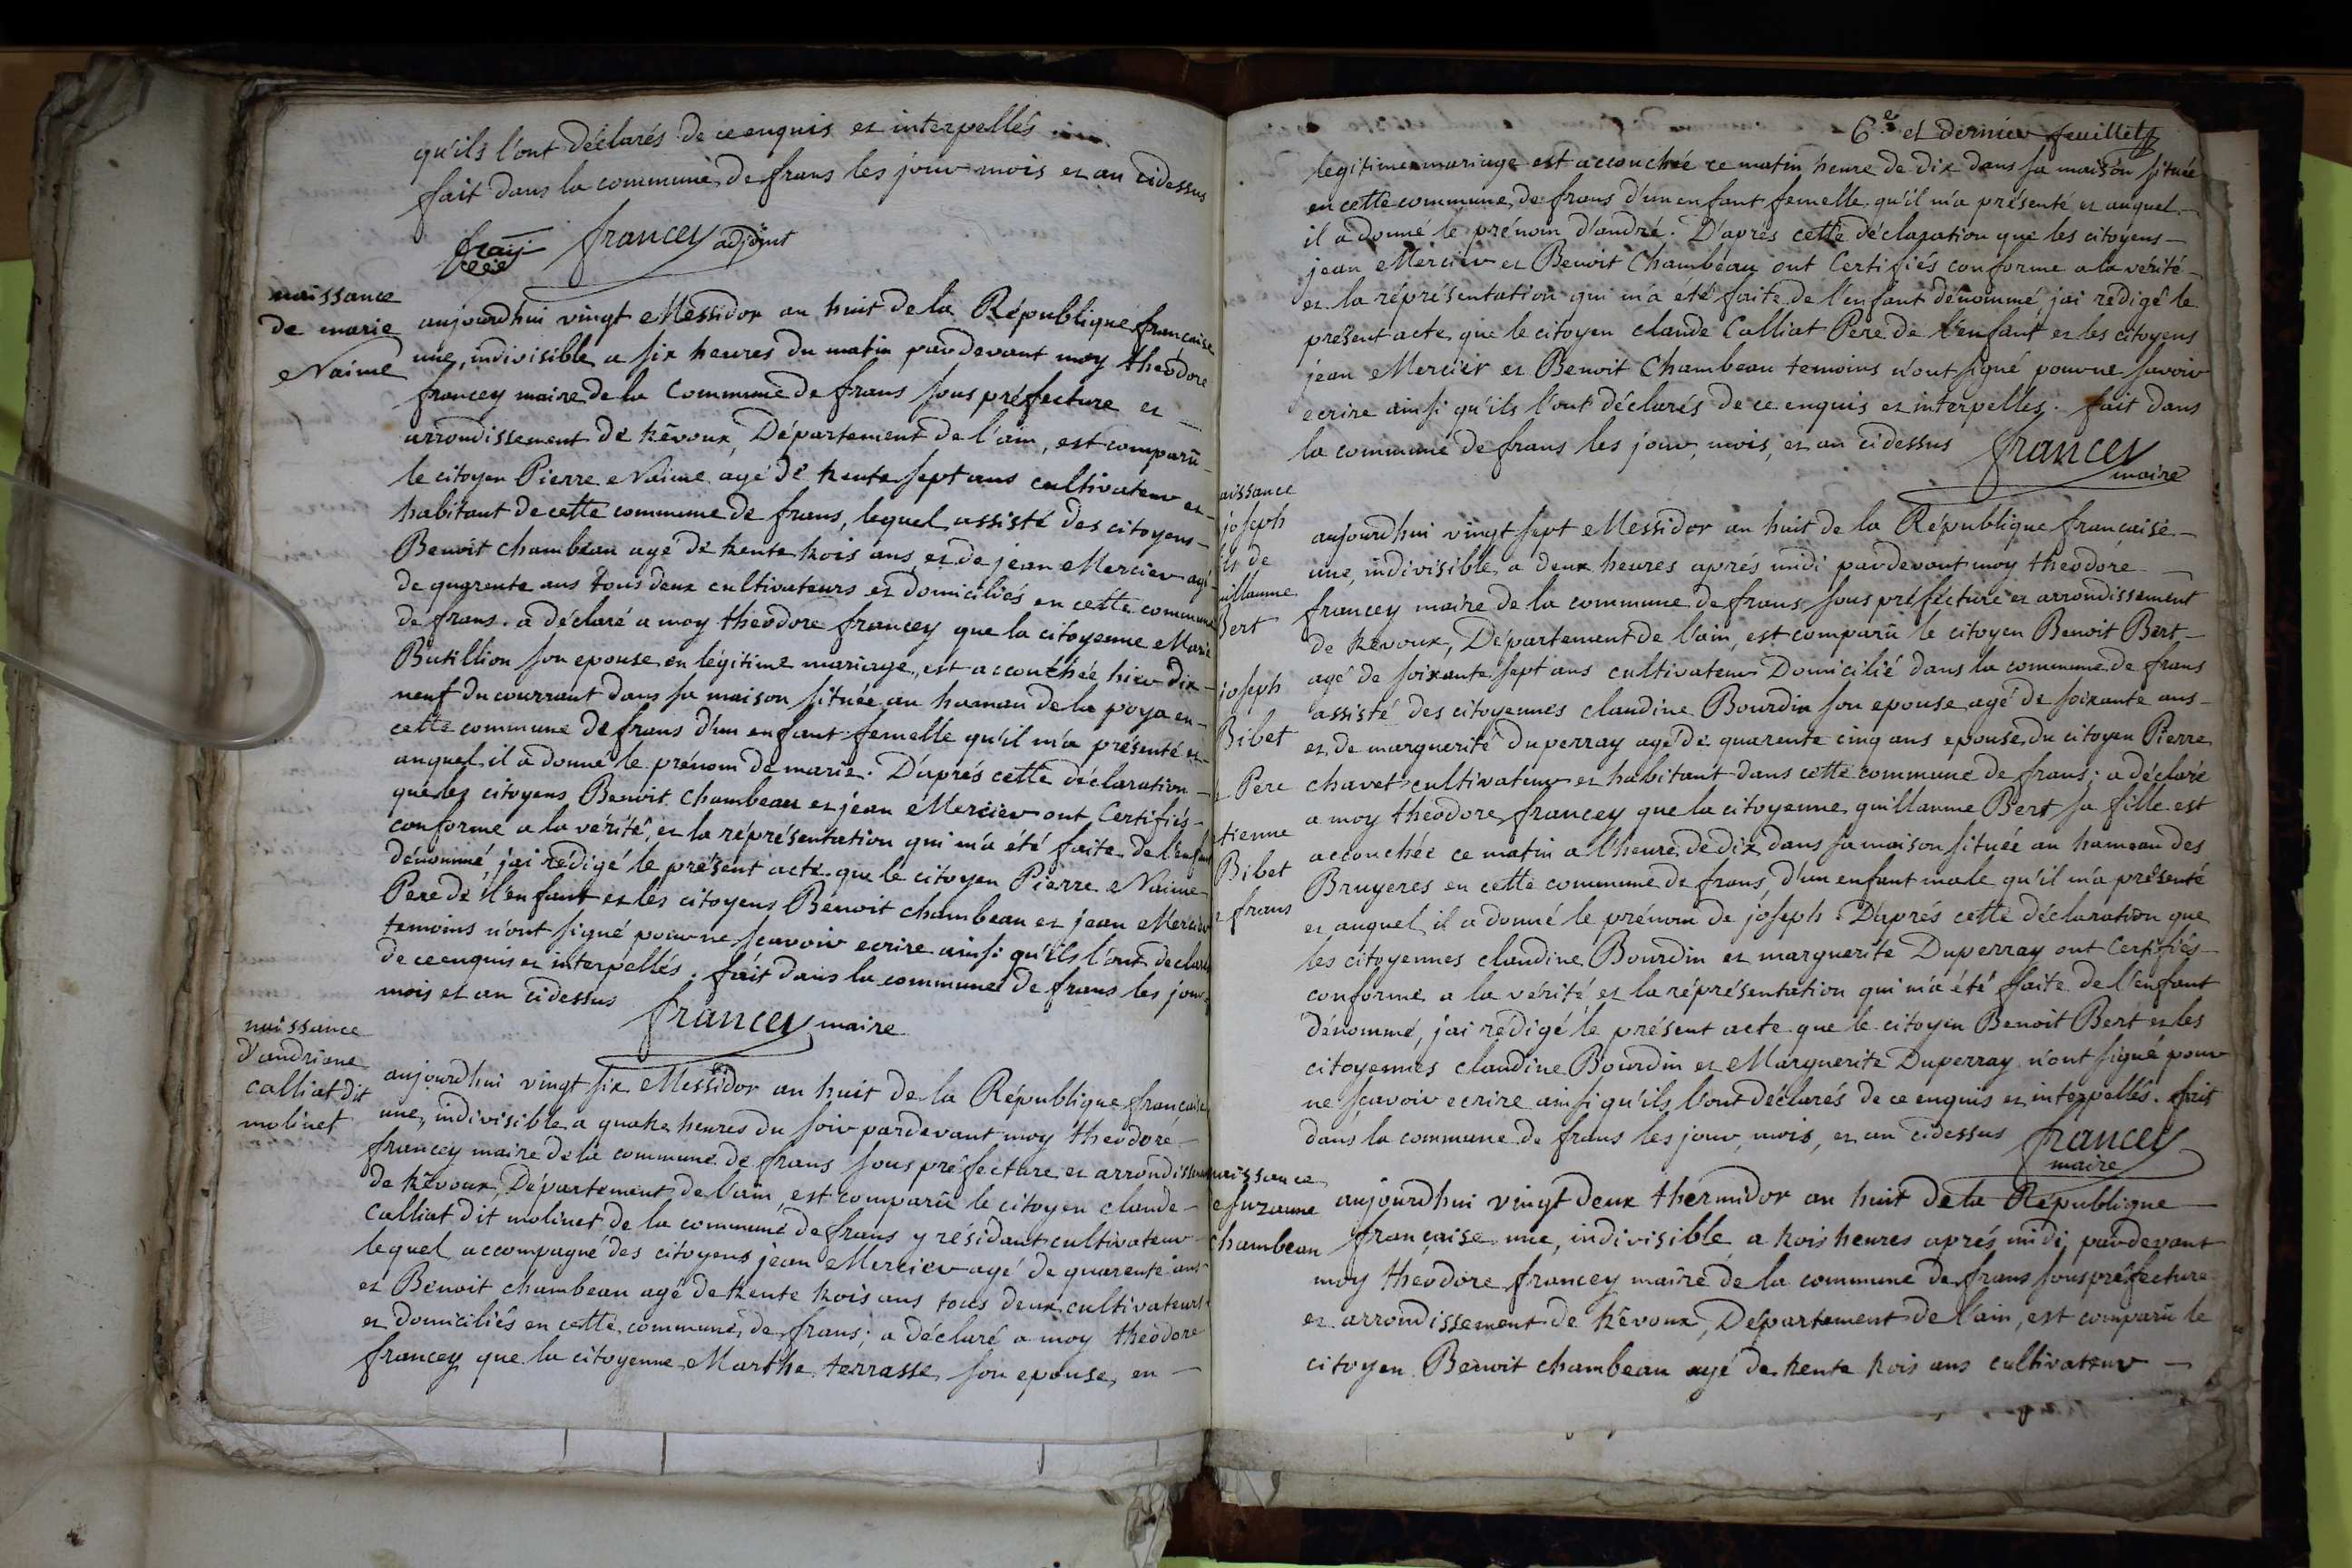 qu'ils l'ont déclarés de ce enquis et interpellés
fait dans la commune de frans les jour mois et an cidessus
francey adjoint
naissance
de marie
Naime
aujourdhui vingt Messidor an huit de la République francaise
une, indivisible a six heures du matin pardevant moy théodore
francey maire de la Commune de frans sous préfecture et
arrondissement de trévoux, Département de l'ain, est comparû
le citoyen Pierre Naime agé de trente sept ans cultivateur et
habitant de cette commune de frans, lequel assisté des citoyens
Benoit chambeau agé de trente trois ans et de jean Mercier agé
de quarente ans tous deux cultivateurs et domiciliés en cette commune
de frans. a déclaré a moy théodore francey que la citoyenne Marie
Butillion son epouse en légitime mariage, est accouchée hier dix
neuf du courrant dans sa maison située au hamau de la poya en
cette commune de frans d'un enfant femelle qu'il m'a présenté et
auquel il a donné le prénom de marie. D'aprés cette déclaration
que les citoyens Benoit Chambeau et jean Mercier ont Certifiés
conforme a la vérité, et la réprésentation qui m'a été faite de l'enfant
dénommé jai rédigé le présent acte que le citoyen Pierre Naime
Pere de l'enfant et les citoyens Benoit chambeau et jean Mercier
temoins n'ont signé pour ne scavoir ecrire ainsi qu'ils l'ont declarés
de ce enquis et interpellés. fait dans la commune de frans les jour,
mois et an cidessus francey maire
naissance
d'andriane
calliat dit
molinet
aujourdhui vingt six Messidor an huit de la République française
une, indivisible a quatre heures du soir pardevant moy théodore
francey maire de la commune de frans sous préfecture et arrondissement
de trévoux, Département de l'ain, est comparû le citoyen claude
Calliat dit molinet, de la commune de frans y résidant cultivateur
lequel accompagné des citoyens jean Mercier agé de quarente ans
et Benoit chambeau agé de trente trois ans tous deux cultivateurs
et domiciliés en cette commune de frans; a déclaré a moy théodore
francey que la citoyenne Marthe terrasse son epouse, en
6e et dernier feuillet
legitime mariage est accouchée ce matin heure de dix dans sa maison située
en cette commune de frans d'un enfant femelle qu'il m'a présenté et auquel
il a donné le prénom d'andré. D'aprés cette déclaration que les citoyens
jean Mercier et Benoit Chambeau ont Certifiés conforme a la vérité
et la réprésentation qui m'a été faite de l'enfant dénommé jai rédigé le
présent acte que le citoyen claude Calliat Pere de l'enfant et les citoyens
jean Mercier et Benoit Chambeau temoins n'ont signé pour ne savoir
ecrire ainsi qu'ils l'ont déclarés de ce enquis et interpelles. fait dans
la commune de frans les jour, mois, et an cidessus francey
maire
aissance
joseph
ls de
uillaume
Bert
joseph
Bibet
Pere
tienne
Bibet
frans
aujourdhui vingt sept Messidor an huit de la République francaise
une, indivisible a deux heures aprés midi pardevant moy théodore
francey maire de la commune de frans, sous préfecture et arrondissement
de trevoux, Département de l'ain, est comparû le citoyen Benoit Bert
agé de soixante sept ans cultivateur Domicilié dans la commune de frans
assisté des citoyennes claudine Bourdin son epouse agé de soixante ans
et de marguerite duperray agé de quarente cinq ans epouse du citoyen Pierre
chavet cultivateur et habitant dans cette commune de frans; a déclaré
a moy théodore francey que la citoyenne guillaume Bert sa fille est
accouchée ce matin a l'heure de dix dans sa maison située au hameau des
Bruyeres en cette commune de frans, d'un enfant male qu'il m'a présenté
et auquel il a donné le prénom de joseph. D'aprés cette déclaration que
les citoyennes claudine Bourdin et marguerite Duperray ont Certifiés
conforme a la vérité et la réprésentation qui m'a été faite de l'enfant
dénommé, jai rédigé le présent acte que le citoyen Benoit Bert et les
citoyennes claudine Bourdin et Marguerite Duperray n'ont signé pour
ne scavoir ecrire ainsi qu'ils l'ont déclarés de ce enquis et interpellés. fait
dans la commune de frans les jour, mois, et an cidessus francey
maire
naissance
e suzanne
chambeau
aujourdhui vingt deux thermidor an huit de la République
française une, indivisible a trois heures aprés midi pardevant
moy théodore francey maire de la commune de frans sous préfecture
et arrondissement de trévoux, Département de l'ain, est comparû le
citoyen Benoit chambeau agé de trente trois ans cultivateur